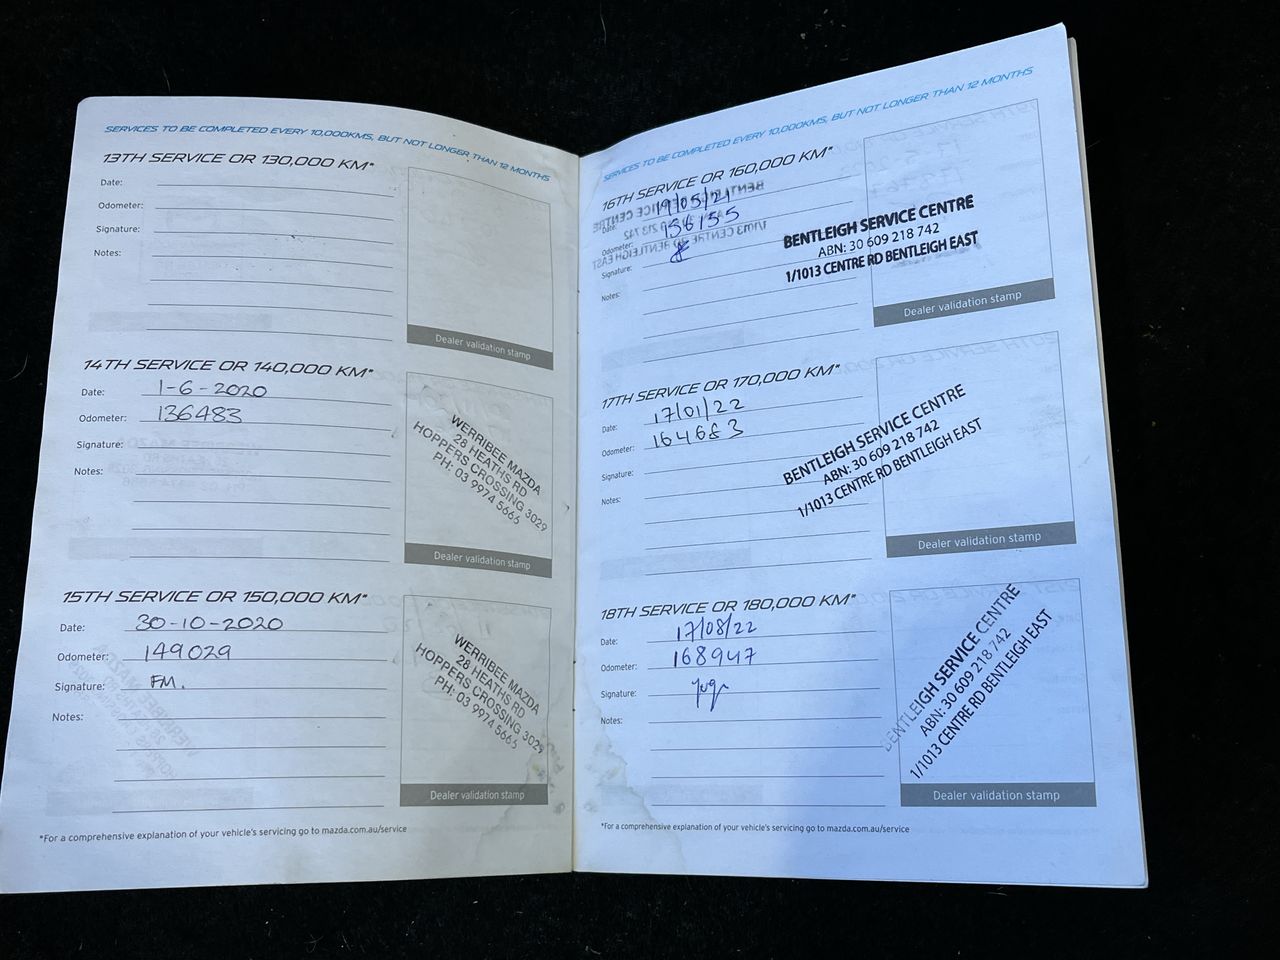 SERVICES TO BE COMPLETED EVERY 10,000KMS, BUT NOT LONGER THAN 12 MONTHS
13TH SERVICE OR 130,000 KM*
Date:
Odometer:
Signature:
Notes:
Dealer validation stamp
14TH SERVICE OR 140,000 KM*
Date: 1-6-2020
Odometer: 136483
Signature:
Notes:
WERRIBEE MAZDA
28 HEATHS RD
HOPPERS CROSSING 3029
PH: 03 9974 5666
Dealer validation stamp
15TH SERVICE OR 150,000 KM*
Date: 30-10-2020
Odometer: 149029
Signature: FM.
Notes:
WERRIBEE MAZDA
28 HEATHS RD
HOPPERS CROSSING 3029
PH: 03 9974 5666
Dealer validation stamp
*For a comprehensive explanation of your vehicle's servicing go to mazda.com.au/service
SERVICES TO BE COMPLETED EVERY 10,000KMS, BUT NOT LONGER THAN 12 MONTHS
16TH SERVICE OR 160,000 KM*
Date: 19/05/21
Odometer: 156155
Signature:
Notes:
BENTLEIGH SERVICE CENTRE
ABN: 30 609 218 742
1/1013 CENTRE RD BENTLEIGH EAST
Dealer validation stamp
17TH SERVICE OR 170,000 KM*
Date: 17/01/22
Odometer: 164683
Signature:
Notes:
BENTLEIGH SERVICE CENTRE
ABN: 30 609 218 742
1/1013 CENTRE RD BENTLEIGH EAST
Dealer validation stamp
18TH SERVICE OR 180,000 KM*
Date: 17/08/22
Odometer: 168947
Signature:
Notes:
BENTLEIGH SERVICE CENTRE
ABN: 30 609 218 742
1/1013 CENTRE RD BENTLEIGH EAST
Dealer validation stamp
*For a comprehensive explanation of your vehicle's servicing go to mazda.com.au/service